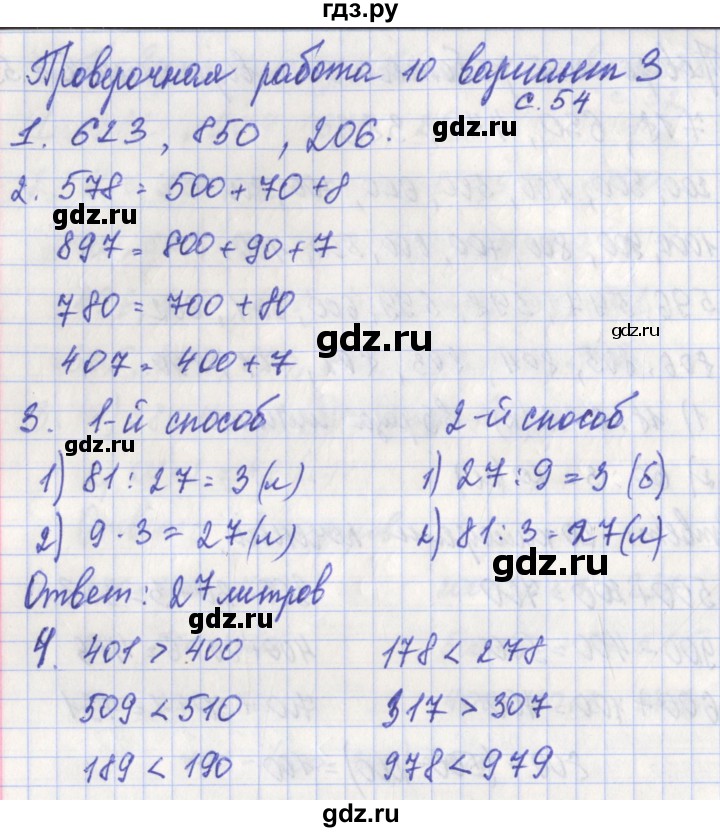 гдз.ру
Проверочная работа 10 вариант 3
с. 54
1. 623, 850, 206.
gdz.ru
2. 578 = 500 + 70 + 8
gdz.ru
897 = 800 + 90 + 7
780 = 700 + 80
gdz.ru
gdz.ru
407 = 400 + 7
3. 1-й способ 2-й способ
gdz.ru
1) 81 : 27 = 3 (л) 1) 27 : 9 = 3 (б)
2) 9 · 3 = 27 (л) 2) 81 : 3 = 27 (л)
gdz.ru
Ответ: 27 литров
gdz.ru
4. 401 > 400 178 < 278
509 < 510 317 > 307
189 < 190 978 < 979
gdz.ru
gdz.ru